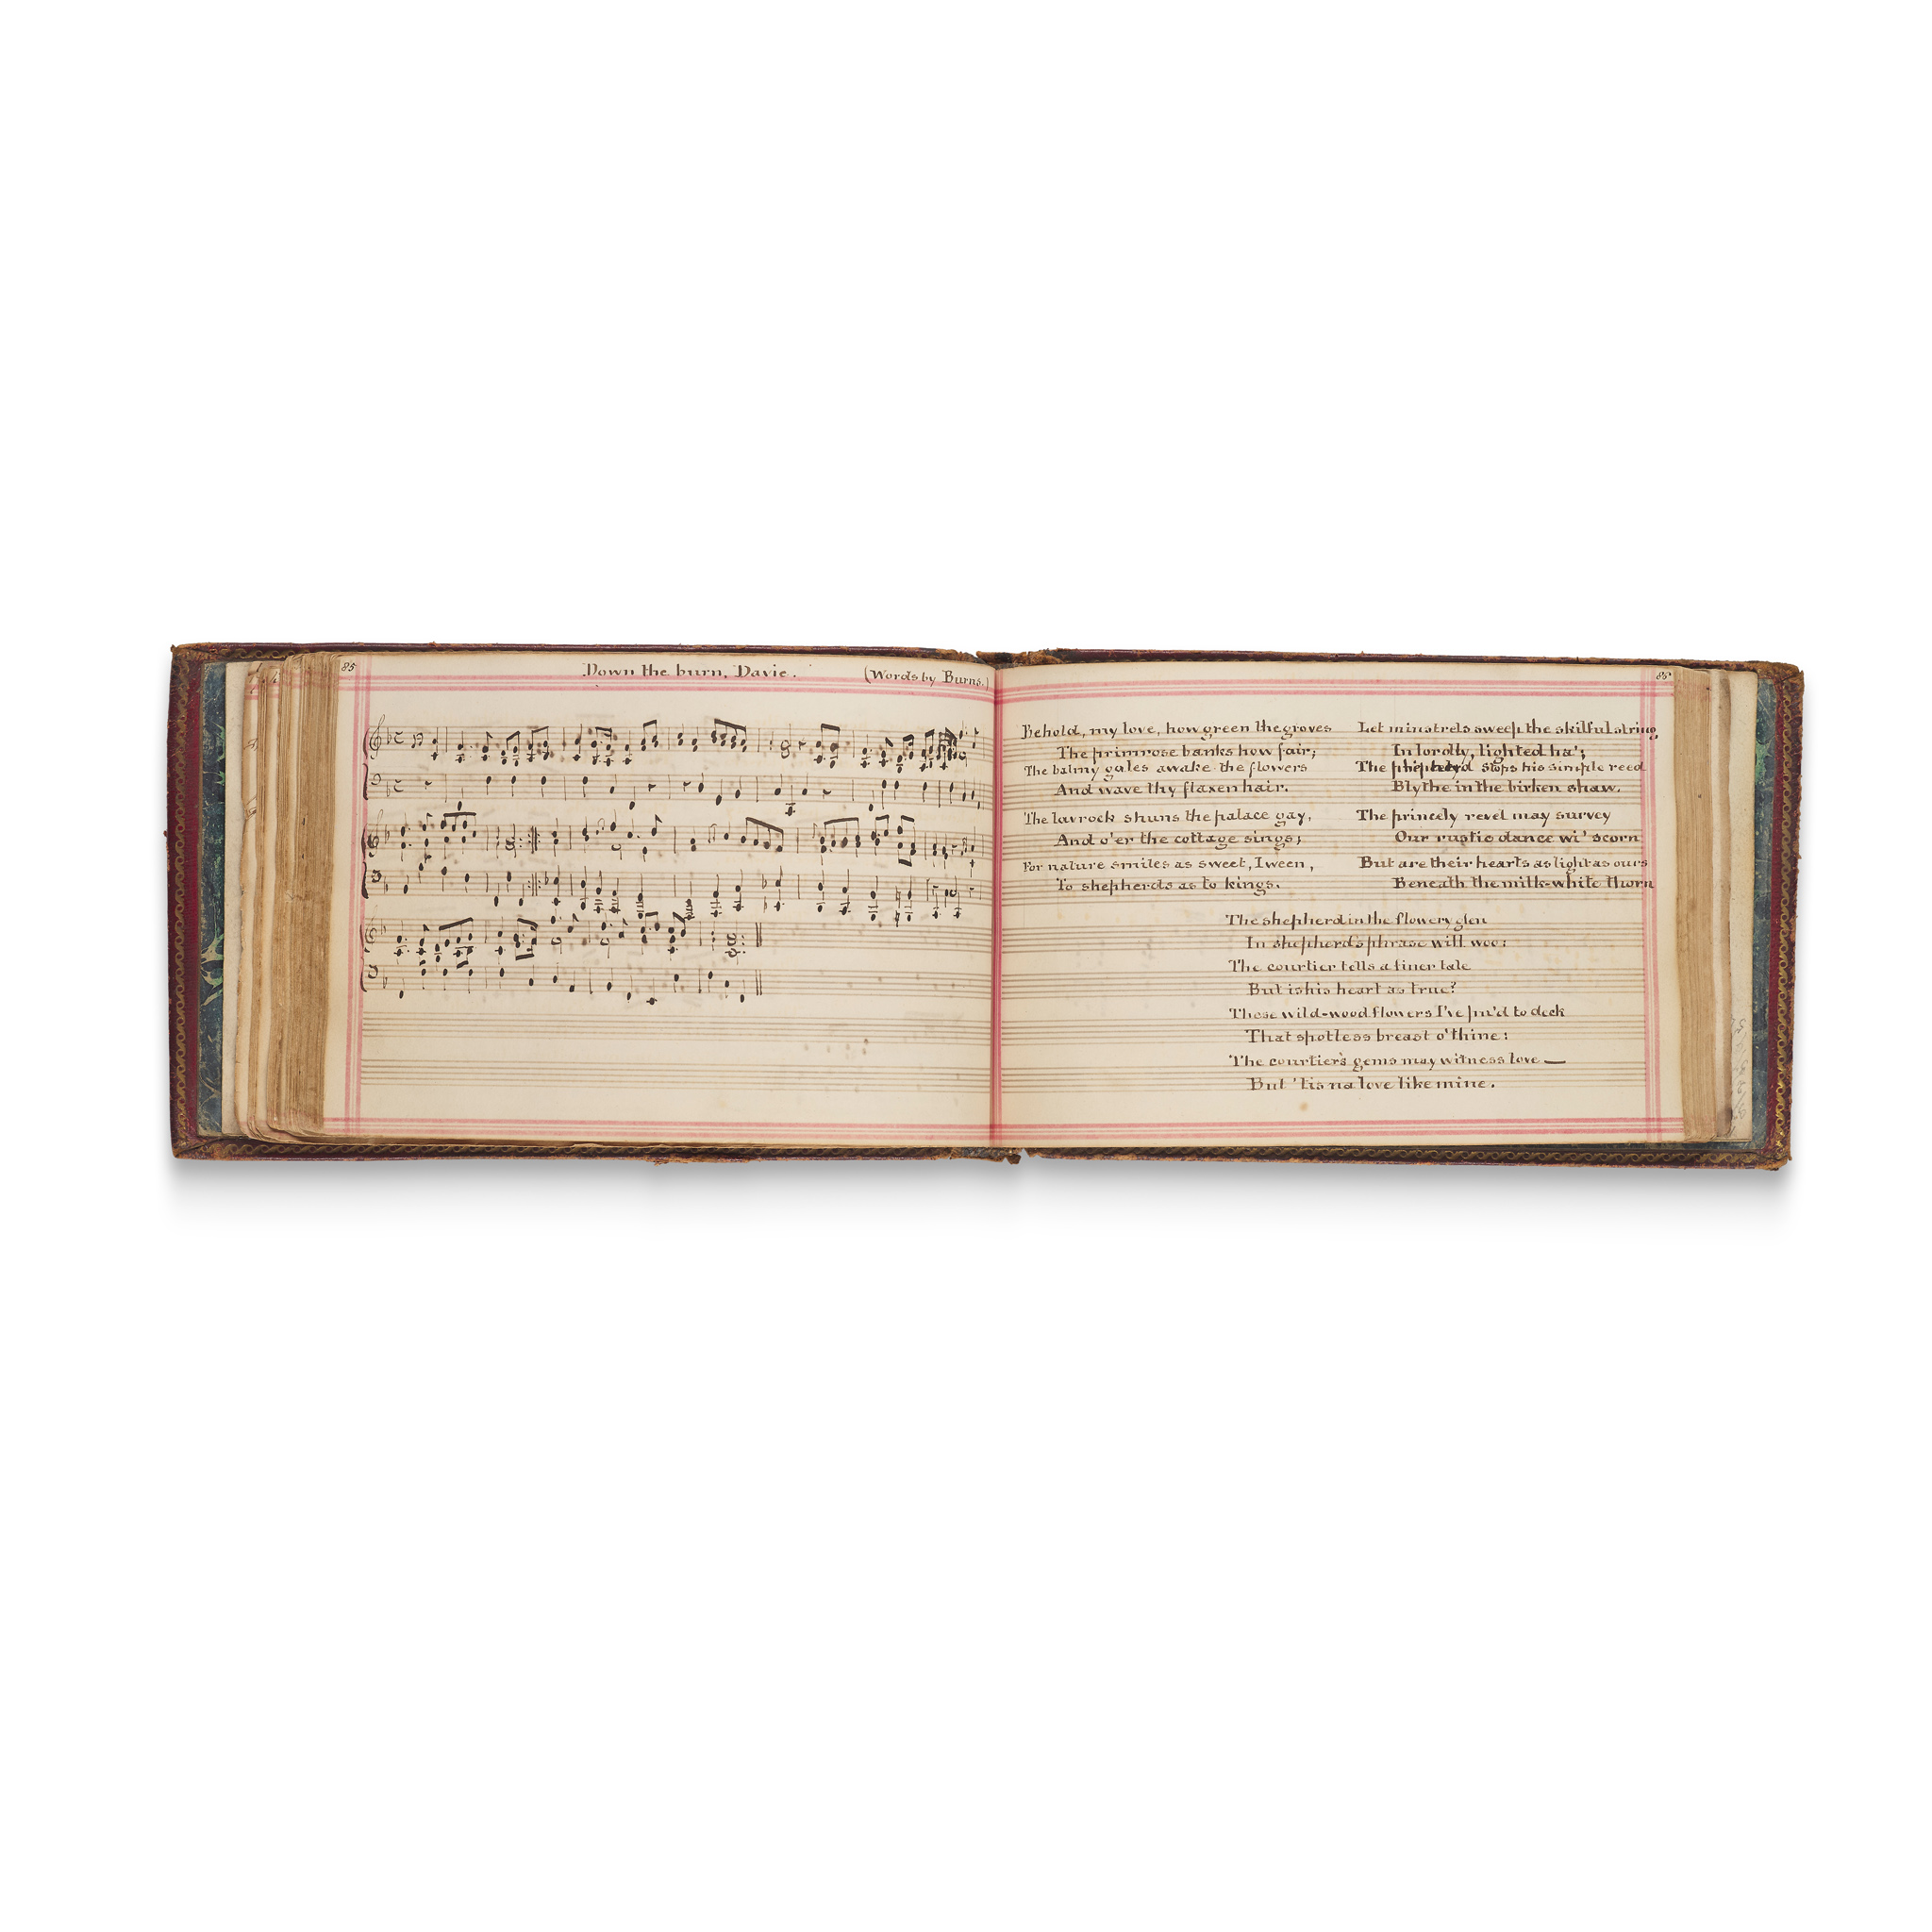 85
Down the burn, Davie.
(Words by Burns.)
85
Behold, my love, how green the groves
The primrose banks how fair;
The balmy gales awake the flowers
And wave thy flaxen hair.
The lavrock shuns the palace gay,
And o'er the cottage sings;
For nature smiles as sweet, I ween,
To shepherds as to kings.
Let minstrels sweep the skilful string
In lordly, lighted ha';
The shepherd stops his simple reed
Blythe in the birken shaw.
The princely revel may survey
Our rustic dance wi' scorn
But are their hearts as light as ours
Beneath the milk-white thorn
The shepherd in the flowery glen
In shepherd's phrase will woo:
The courtier tells a finer tale
But is his heart as true?
These wild-wood flowers I've pu'd to deck
That spotless breast o' thine:
The courtier's gems may witness love —
But 'tis na love like mine.